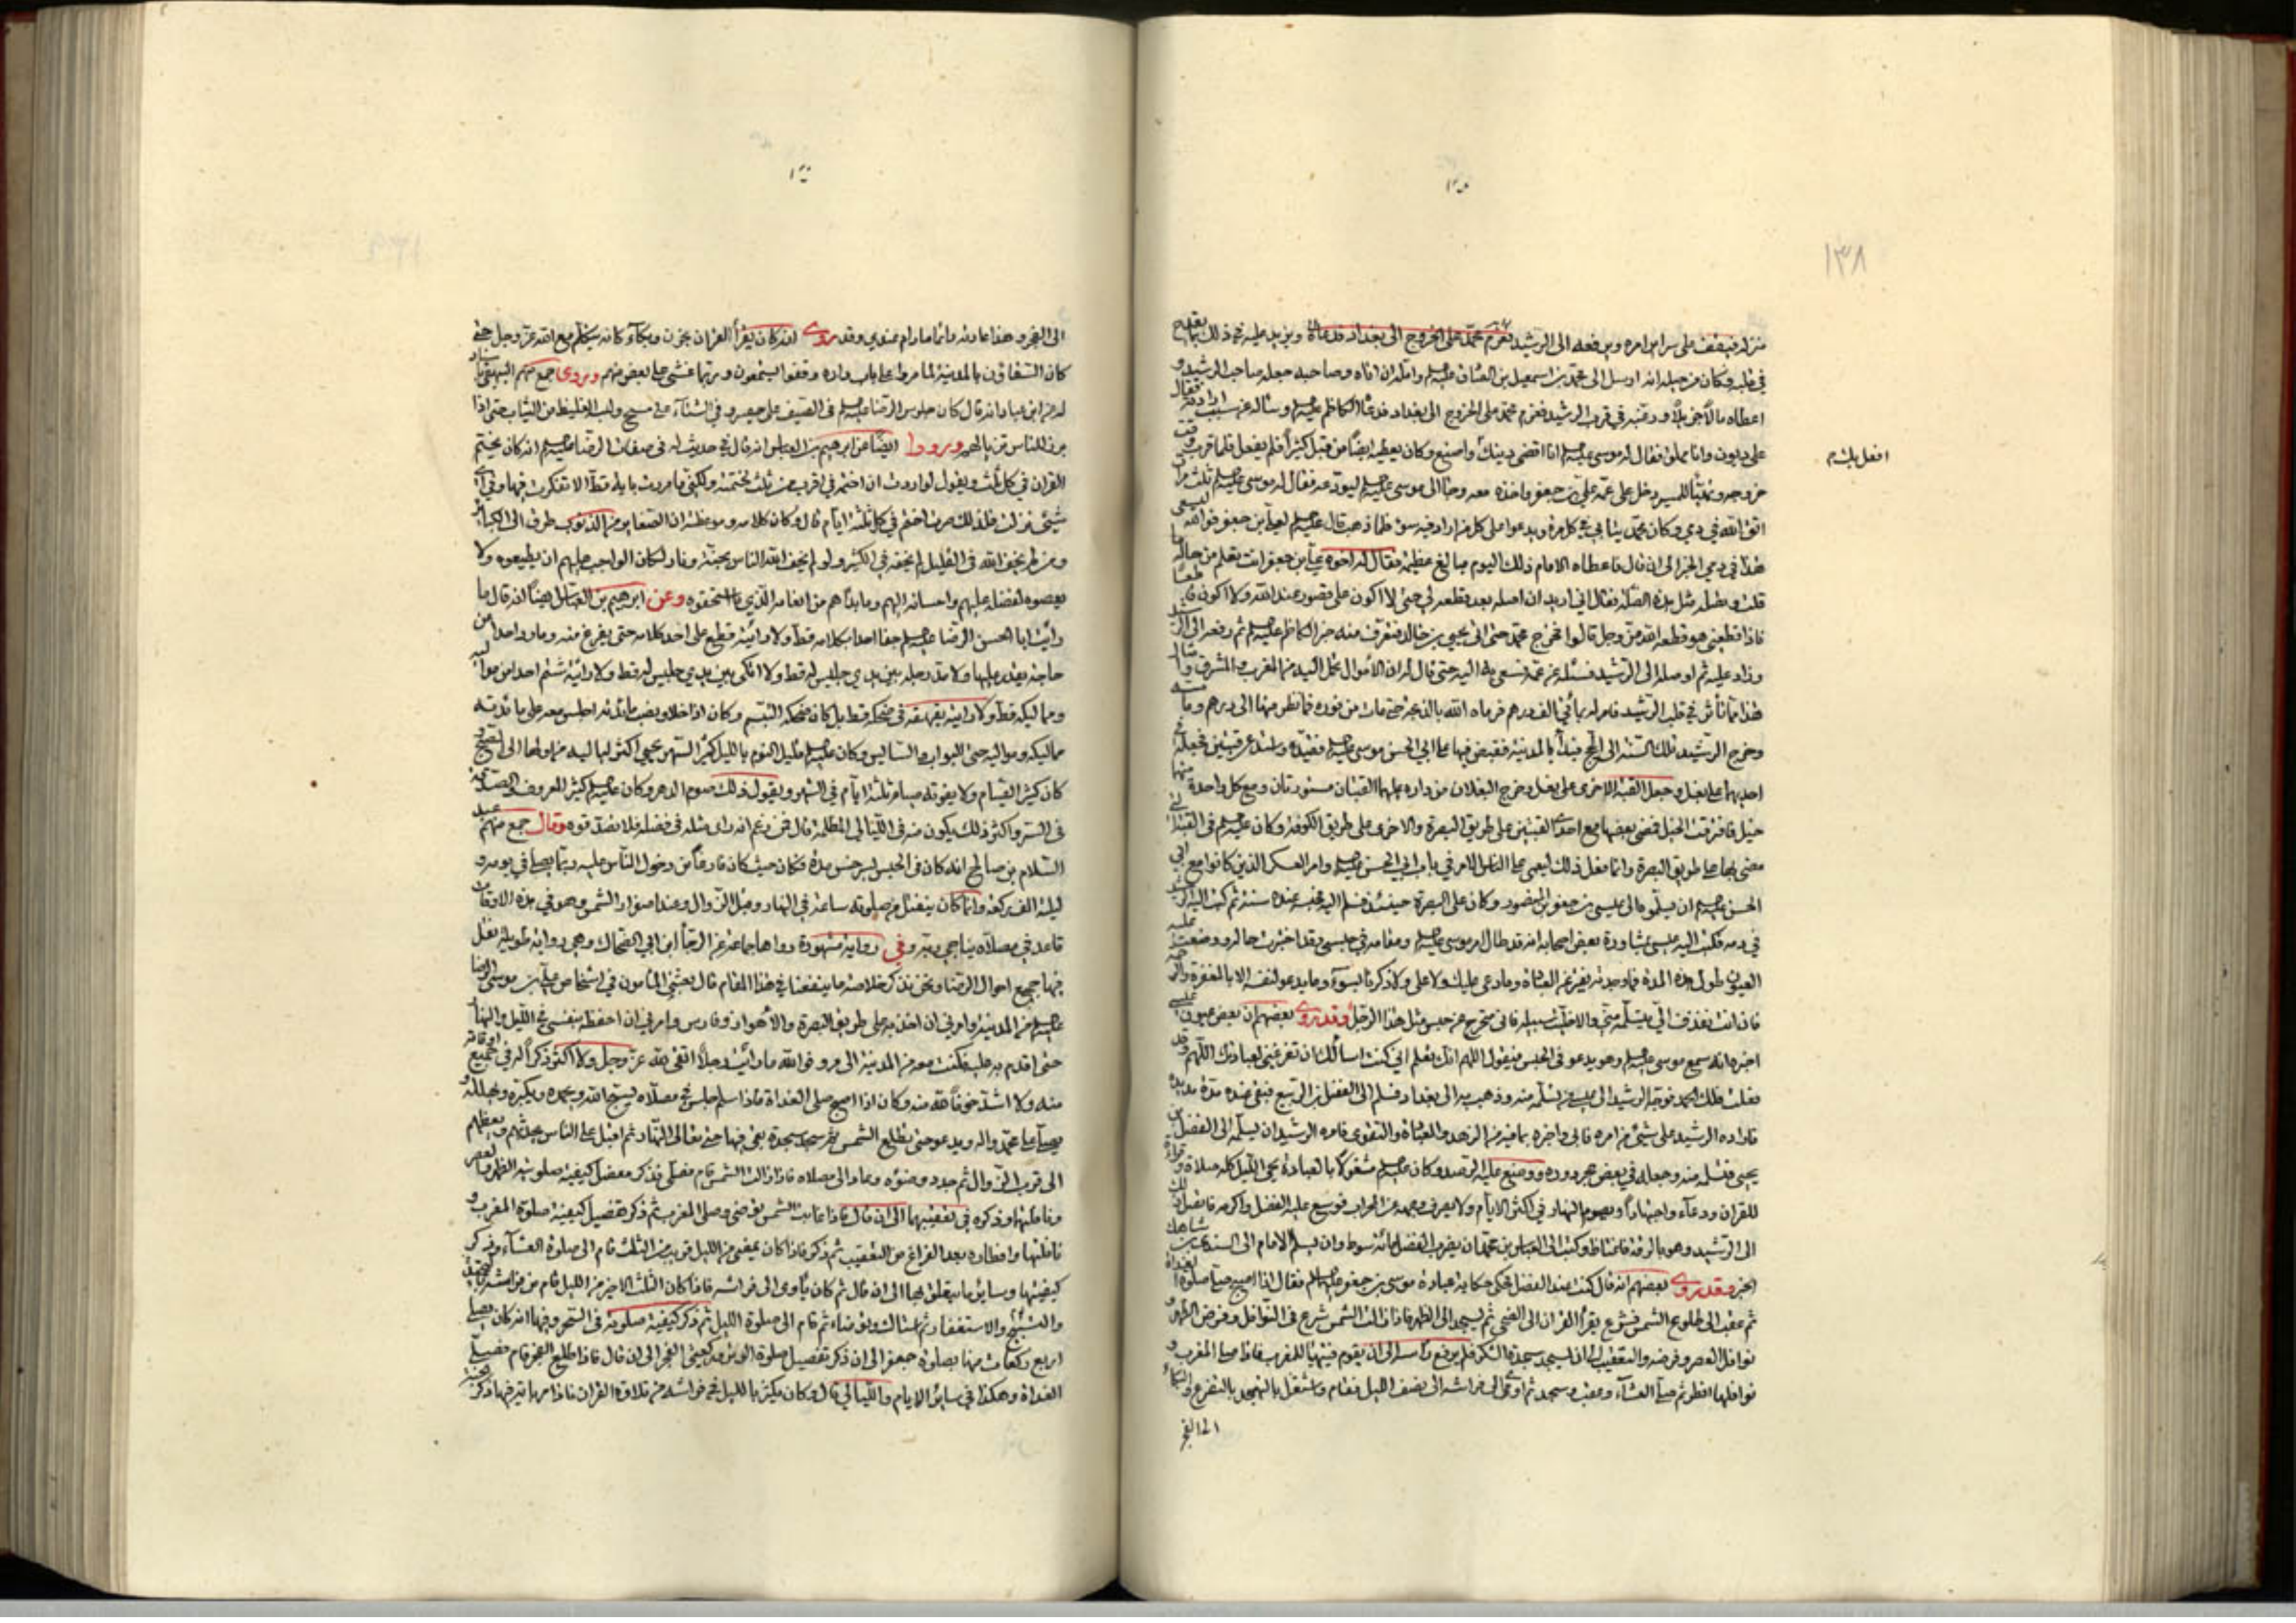 ١٣٨
منزله فيقف على سرائر امره ويرفعه الى الرشيد
في قلبه وكان من حيله انه ارسل الى محمد بن اسمعيل بن الصادق عليه السلم
اعطاه مالا جزيلا ورغبه في قرب الرشيد فعزم محمد على الخروج الى بغداد فدعاه الكاظم عليه السلم وسأله عن سبب
على ديون وانا مملق فقال له موسى عليه السلم انا اقضي دينك واصنع وكان يعطيه ايضا من قبل كثيرا فلم يفعل فلما قرب
خروجه وتهيأ للمسير دخل على عمه علي بن جعفر واخذه معه وجاء الى موسى عليه السلم ليودعه فقال له موسى عليه السلم ثلث
اتق الله في دمي وكان محمد في كل مرة ويدعو على كل من اراد فيه سوء فلما ذهب قال عليه السلم لعلي بن جعفر فوالله
هذا في دمي الخبر الى ان قال فاعطاه الامام ذلك اليوم مبالغ عظيمة فقال له اخوه علي بن جعفر انت تعلم من حاله
قلت وتصله مثل هذه الصلة فقال اني اريد ان اصله بعد قطعه لي حتى لا اكون على قصور عند الله ولا اكون
فاذا قطعني هو قطعه الله عز وجل قالوا فخرج محمد حتى اتى يحيى بن خالد فتعرف منه خبر الكاظم عليه السلم ثم رفعه الى
وزاد عليه ثم اوصله الى الرشيد فسئله عن عمه فسعى به اليه حتى قال له ان الاموال تحمل اليه من المغرب والمشرق
هذا مما تأثر في قلب الرشيد فامر له بمائتي الف درهم فرماه الله بالذبحة حتى مات من فوره فما نظر منها الى درهم وما
وخرج الرشيد تلك السنة الى الحج فبدأ بالمدينة فقبض فيها على ابي الحسن موسى عليه السلم فقيده
احديهما على بغل وجعل القبة الاخرى على بغل وخرج البغلان من داره عليهما القبتان مستورتان ومع كل واحدة
خيل فافترقت الخيل فمضى بعضها مع احدى القبتين على طريق البصرة والاخرى على طريق الكوفة وكان عليه السلم في القبة
مضى بها على طريق البصرة وانما فعل ذلك ليعمى على الناس الامر في باب ابي الحسن عليه السلم وامر العسكر الذين كانوا مع
الحسن عليه السلم ان يسلموه الى عيسى بن جعفر بن المنصور وكان على البصرة حينئذ فسلم اليه فحبسه عنده سنة ثم كتب اليه
في دمه فكتب اليه عيسى بمشاورة بعض اصحابه انه قد طال امر موسى عليه السلم ومقامه في حبسي وقد اختبرت حاله ووضعت
العيون طول هذه المدة فما وجدته يفتر عن العبادة وما دعى عليك ولا علي ولا ذكرنا بسوء وما يدعو لنفسه الا بالمغفرة
فان انت تنفذت الي من يتسلمه مني والا خليت سبيله فاني متحرج من حبس مثل هذا الرجل وقد روى بعضهم ان بعض عيون
اخبره انه سمع موسى عليه السلم وهو يدعو في الحبس فيقول اللهم انك تعلم اني كنت اسألك ان تفرغني لعبادتك اللهم
فعلت فلك الحمد فوجه الرشيد الى عيسى من تسلمه منه وذهب به الى بغداد فسلم الى الفضل بن الربيع فبقي عنده مدة
فاراده الرشيد على شيء من امره فابى واخبره بما فيه من الزهد والعبادة والتقوى فامره الرشيد ان يسلمه الى الفضل
يحيى فتسلمه منه وجعله في بعض حجر دوره ووضع عليه الرصد وكان عليه السلم مشغولا بالعبادة يحيي الليل كله صلاة
للقرآن ودعاء واجتهادا ويصوم النهار في اكثر الايام ولا يصرف وجهه عن المحراب فوسع عليه الفضل واكرمه
الى الرشيد وهو بالرقة فاغتاظ وكتب الى العباس بن محمد ان يضرب الفضل مائة سوط وان يسلم الامام الى السندي بن شاهك
الخبر وقد روى بعضهم انه قال كنت عند الفضل فحكى حكاية عبادة موسى بن جعفر عليه السلم فقال اذا اصبح صلى صلوة الغداة
ثم عقب الى طلوع الشمس فشرع يقرأ القرآن الى الضحى ثم يسجد الى الظهر فاذا زالت الشمس شرع في النوافل وفرض الظهر
نوافل العصر وفرضه والتعقيب
نوافلها افطر ثم صلى العشاء وعقب وسجد ثم اوى الى فراشه الى نصف الليل فقام واشتغل بالتهجد بالتضرع والبكاء
الى الفجر
الى الفجر وهذا عادته دائما مادام عندي وقد روى انه كان يقرأ القرآن بحزن وبكاء كانه يتكلم مع الله عز وجل حتى
كان السقاؤن بالمدينة لما مروا على باب داره وقفوا يسمعون وربما غشي على بعض منهم وروى جمع منهم البيهقي
له عن ابن عباد انه قال كان جلوس الرضا عليه السلم في الصيف على حصير وفي الشتاء على مسح ولبسه الغليظ من الثياب حتى اذا
برز للناس تزين لهم ورووا ايضا عن ابرهيم بن العباس انه قال في حديث له في صفات الرضا عليه السلم انه كان يختم
القرآن في كل ثلث ويقول لو اردت ان اختم في اقرب من ثلث لختمته ولكني ما مررت بآية قط الا تفكرت فيها وفي اي
شيء نزلت فلذلك صرت اختم في كل ثلثة ايام قال وكان كلامه وموعظته ان الصغاير من الذنوب طرق الى الكبائر
ومن لم يخف الله في القليل لم يخفه في الكثير ولو لم يخوف الله الناس بجنة ونار لكان الواجب عليهم ان يطيعوه ولا
يعصوه لفضله عليهم واحسانه اليهم وما بدأهم من انعامه الذي ما استحقوه وعن ابرهيم بن العباس ايضا انه قال ما
رايت ابا الحسن الرضا عليه السلم جفا احدا بكلامه قط ولا رايته قطع على احد كلامه حتى يفرغ منه وما رد احدا من
حاجة يقدر عليها ولا مد رجله بين يدي جليس له قط ولا اتكى بين يدي جليس له قط ولا رايته شتم احدا من مواليه
ومماليكه قط ولا رايته يقهقه في ضحكه قط بل كان ضحكه التبسم وكان اذا خلا ونصب مائدته اجلس معه على مائدته
مماليكه ومواليه حتى البواب والسايس وكان عليه السلم قليل النوم بالليل كثير السهر يحيي اكثر لياليه من اولها الى الصبح
كان كثير الصيام ولا يفوته صيام ثلثة ايام في الشهر ويقول ذلك صوم الدهر وكان عليه السلم كثير المعروف والصدقة
في السر واكثر ذلك يكون منه في الليالي المظلمة قال فمن زعم انه راى مثله في فضله فلا تصدقوه وقال جمع منهم عبد
السلام بن صالح انه كان في الحبس
ليلة الف ركعة وانما كان ينفتل من صلوته ساعة في النهار وقبل الزوال وعند اصفرار الشمس وهو في هذه الاوقات
قاعد في مصلاه يناجي ربه وفي رواية مشهودة رواها جماعة عن الرجاء ابن ابي الضحاك وهي رواية طويلة نقل
فيها جميع احوال الرضا ونحن نذكر خلاصة ما ينفعنا في هذا المقام قال بعثني المأمون في اشخاص علي بن موسى الرضا
عليه السلم من المدينة وامرني ان اخذ به على طريق البصرة والاهواز وفارس وامرني ان احفظه بنفسي في الليل والنهار
حتى اقدم به عليه فكنت معه من المدينة الى مرو فوالله ما رايت رجلا اتقى لله عز وجل ولا اكثر ذكرا له في جميع اوقاته
منه ولا اشد خوفا لله منه وكان اذا اصبح صلى الغداة فاذا سلم جلس في مصلاه يسبح الله ويحمده ويكبره ويهلله و
يصلي على محمد واله ويدعو حتى تطلع الشمس ثم سجد سجدة بقي فيها حتى تعالى النهار ثم اقبل على الناس يحدثهم ويعظهم
الى قرب الزوال ثم جدد وضوءه وعاد الى مصلاه فاذا زالت الشمس قام فصلى فذكر مفصلا كيفية صلوته الظهر والعصر
ونافلتهما وذكره في تعقيبهما الى ان قال فاذا غابت الشمس توضى وصلى المغرب ثم ذكر تفصيل كيفية صلوة المغرب و
نافلتها وافطاره بعد الفراغ من التعقيب ثم ذكر فاذا كان يمضي من الليل قريب من الثلث قام الى صلوة العشاء وذكر
كيفيتها وساير ما يتعلق بها الى ان قال ثم كان يأوى الى فراشه فاذا كان الثلث الاخير من الليل قام من فراشه
والتسبيح والاستغفار ثم استاك وتوضاء ثم قام الى صلوة الليل ثم ذكر كيفية صلوته في السحر وفيها انه كان يصلي
اربع ركعات منها بصلوة جعفر الى ان ذكر تفصيل صلوة الوتر وركعتي الفجر الى ان قال فاذا طلع الفجر قام فصلى
الغداة وهكذا في سائر الايام والليالي قال وكان يكثر بالليل في فراشه من تلاوة القرآن فاذا مر بآية فيها ذكر